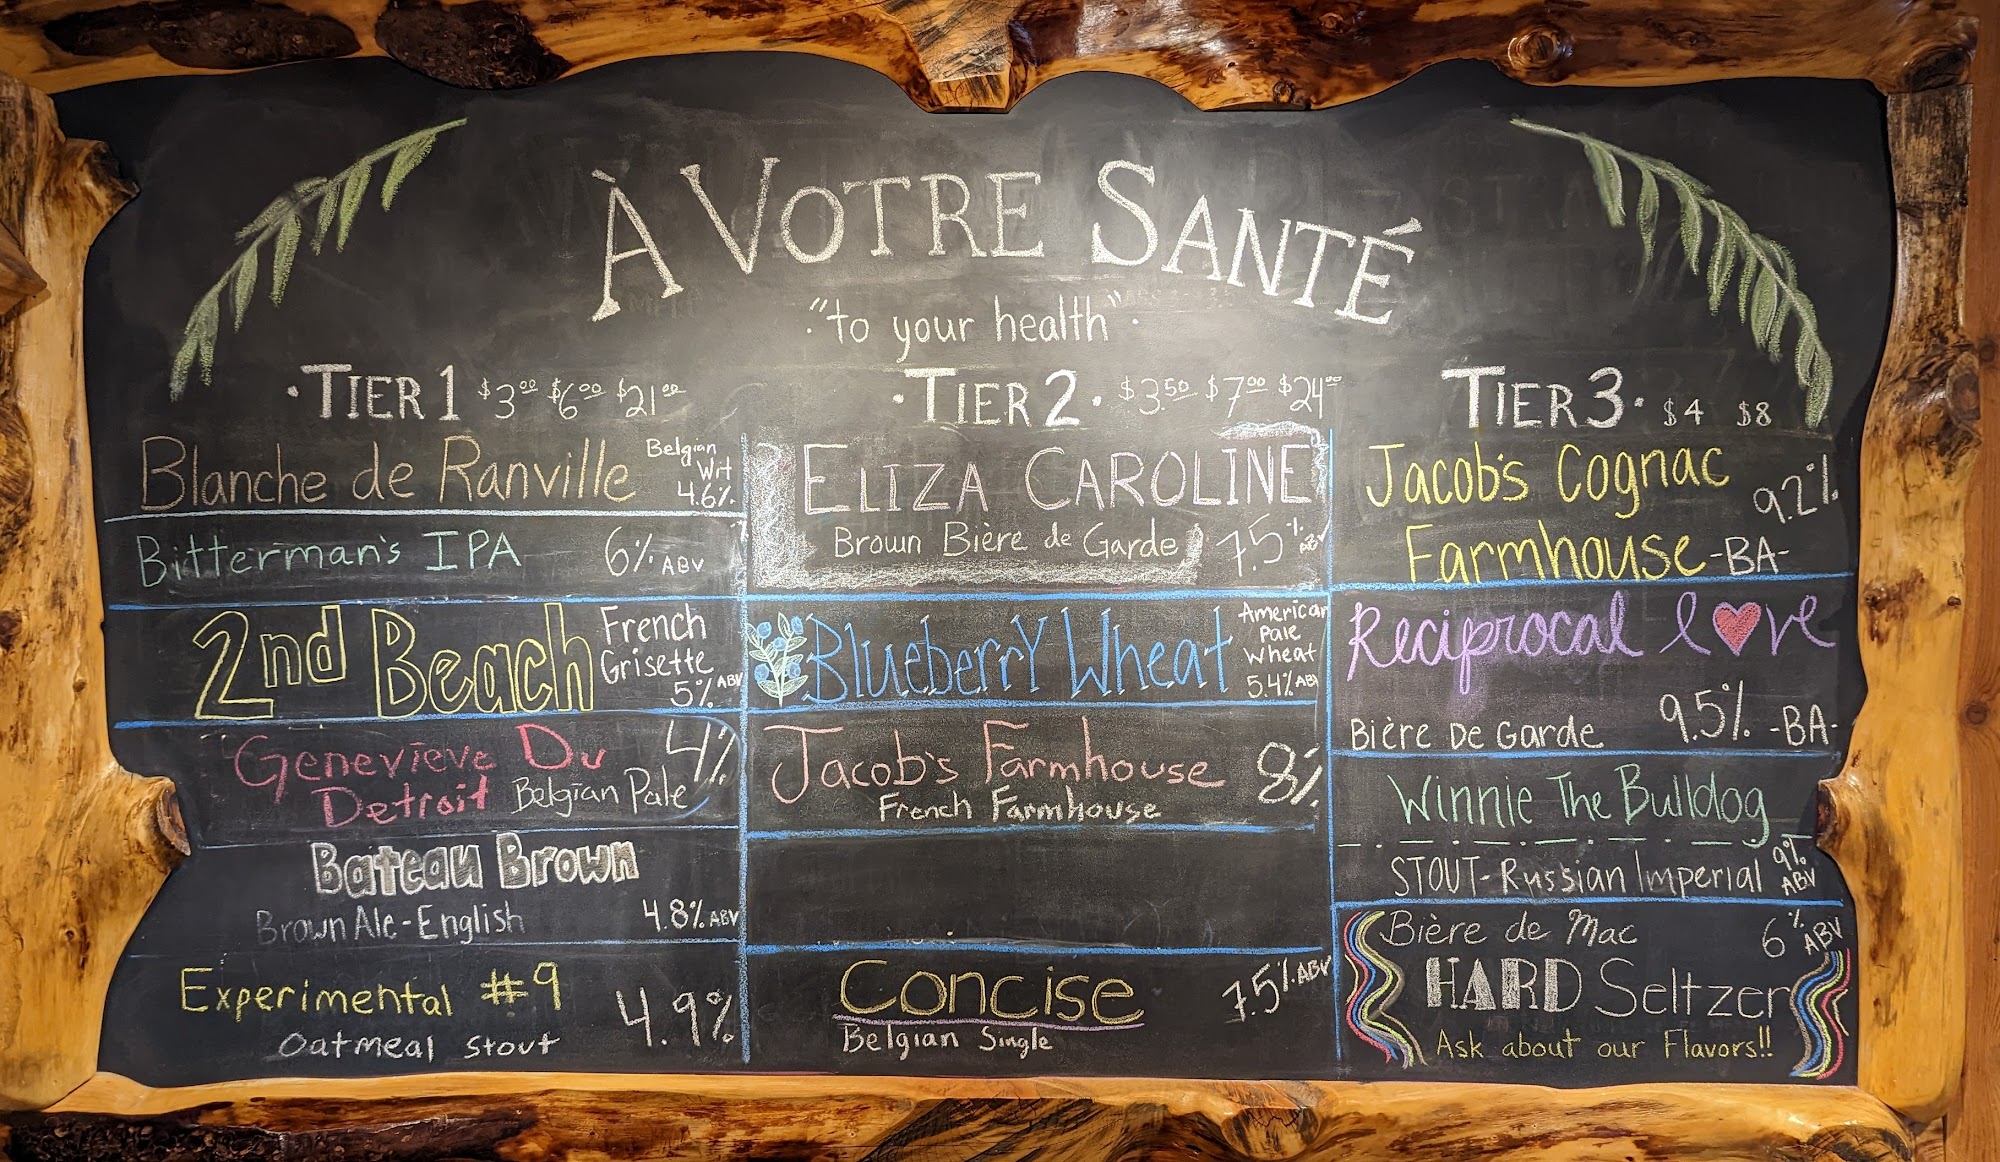 À VOTRE SANTÉ
"to your health"
·TIER 1 $3⁰⁰ $6⁰⁰ $21⁰⁰
Blanche de Ranville
Belgian
Wit
4.6%
Bitterman's IPA 6% ABV
2nd Beach
French
Grisette
5% ABV
Genevieve Du
Detroit
Belgian Pale
4%
Bateau Brown
Brown Ale-English 4.8% ABV
Experimental #9
Oatmeal Stout
4.9%
·TIER 2· $3.50 $7⁰⁰ $24⁰⁰
ELIZA CAROLINE
Brown Bière de Garde 7.5% ABV
Blueberry Wheat
American
Pale
Wheat
5.4% ABV
Jacob's Farmhouse
French Farmhouse
8%
Concise
Belgian Single
7.5% ABV
TIER 3· $4 $8
Jacob's Cognac
Farmhouse -BA-
9.2%
Reciprocal love
Bière De Garde 9.5% -BA-
Winnie The Bulldog
STOUT-Russian Imperial
9%
ABV
Bière de Mac 6% ABV
HARD Seltzer
Ask about our Flavors!!